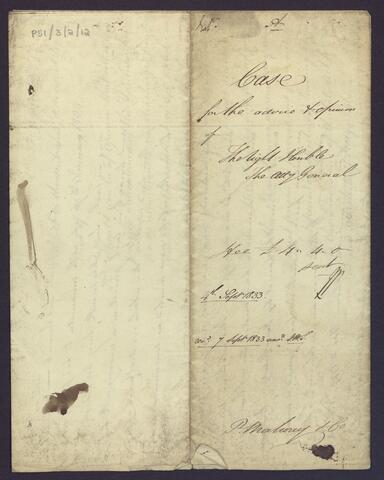 PS1/3/2/12
A
Case
for the advice & opinion
of
The right Honble
The Atty General
Fee £ 4 " 4 - 0
sent
Sept 1833
7 Sept 1833
P. Mahony & Co